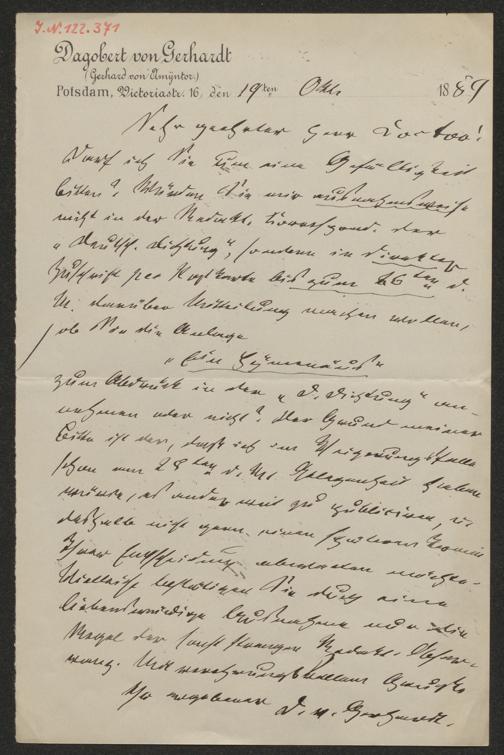 I.N. 122.371
Dagobert von Gerhardt
(Gerhard von Amyntor.)
Potsdam, Victoriastr. 16, den 19ten Okt. 1889
Sehr geehrter Herr Doctor!
Darf ich Sie um eine Gefälligkeit
bitten? Würden Sie mir ausnahmsweise
nicht in der Redakt. Correspond. der
„Deutsch. Dichtung", sondern in direkter
Zuschrift per Postkarte bis zum 26ten d.
M. darüber Mittheilung machen wollen,
ob Sie die Anlage
„Ein Hymenäus"
zum Abdruck in der „D. Dichtung" an-
nehmen oder nicht? Der Grund meiner
Bitte ist der, daß ich im Weigerungsfalle
schon am 28ten d. Mts. Gelegenheit haben
würde, es anderweit zu publiciren, u.
deshalb nicht gern einen späteren Termin
Ihrer Entscheidung abwarten möchte.
Vielleicht bestätigen Sie durch eine
liebenswürdige Ausnahme nur die
Regel der sonst strengen Redakt. Obser-
vanz. Mit verehrungsvollem Gruße
Ihr ergebener D. v. Gerhardt.